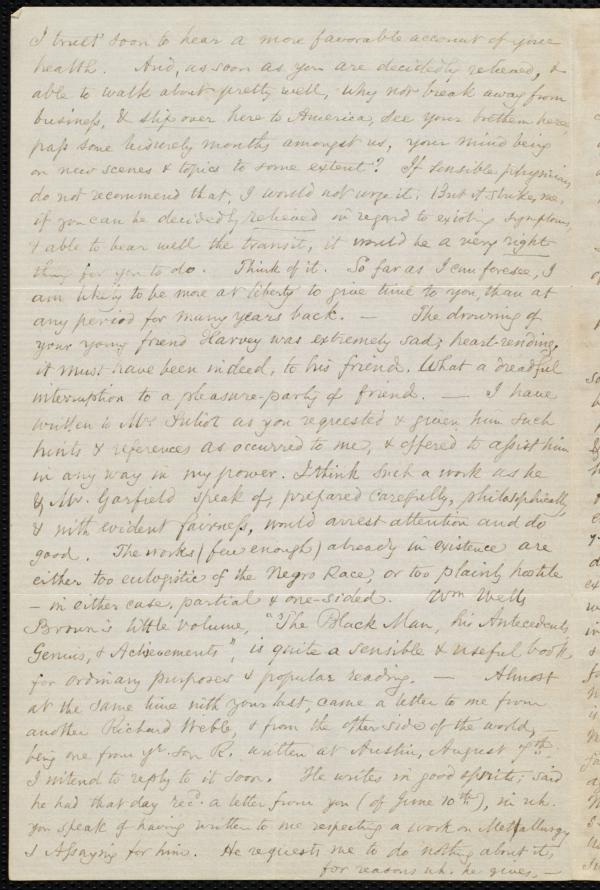 I trust soon to hear a more favorable account of your
health. And, as soon as you are decidedly relieved, &
able to walk about pretty well, why not break away from
business, & slip over here to America, see your brethren here,
pass some leisurely months amongst us, your mind being
on new scenes & topics to some extent? If sensible physicians
do not recommend that, I would not urge it. But it strikes me,
if you can be decidedly relieved in regard to existing symptoms,
& able to bear well the transit, it would be a very right
thing for you to do. Think of it. So far as I can foresee, I
am likely to be more at liberty to give time to you, than at
any period for many years back. — The drowning of
your young friend Harvey was extremely sad; heart-rending,
it must have been indeed, to his friend. What a dreadful
interruption to a pleasure-party of friend. — I have
written to Mr. as you requested & given him such
hints & references as occurred to me, & offered to assist him
in any way in my power. I think such a work as he
& Mr. Garfield speak of, prepared carefully, philosophically
& with evident fairness, would arrest attention and do
good. The works (few enough) already in existence are
either too eulogistic of the Negro Race, or too plainly hostile
– in either case, partial & one-sided. Wm Wells
Brown's little volume, "The Black Man, his Antecedents,
Genius, & Achievements", is quite a sensible & useful book
for ordinary purposes & popular reading. — Almost
at the same time with your last, came a letter to me from
another Richard Webb, & from the other side of the world,
being one from yr. son R. written at Austin, August 7th.
I intend to reply to it soon. He writes in good spirits; said
he had that day recd. a letter from you (of June 10th), in wh.
you speak of having written to me respecting a work on Metallurgy
& Assaying for him. He requests me to do nothing about it,
for reasons wh. he gives. —